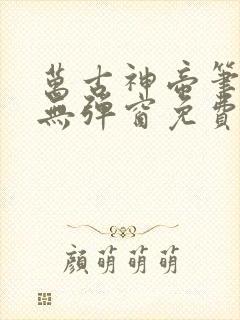 萬古神帝筆
無彈窗免費
顏萌萌萌